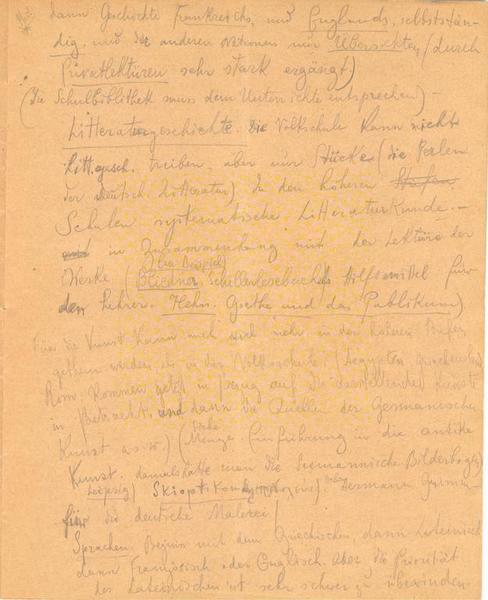 dann Geschichte Frankreichs, und Englands, selbststän-
dig, und der anderen Nationen nur Übersichten (durch
Privatlektüren sehr stark ergänzt)
(Die Schulbibliothek muss dem Unterrichte entsprechen) -
Litteraturgeschichte. Die Volkschule kann nicht
Littgesch. treiben aber nur Stücke (die Perlen
der deutsch. Litteratur) In den höheren Stufen
Schulen systematische Litteraturkunde. -
und in Zusammenhang mit der Lektüre der
Werke (
den Lehrer. Hehn. Goethe und das Publikum)
Für die Kunst kann auch viel mehr in den höheren Stufen
gethan werden als in der Volkschule. (
Rom. kommen jetzt in Bezug auf die darstellenden Künste
in Betracht, und dann die Quellen der Germanischen
Kunst u.s.w.) (Siehe Menge Einführung in die antike
Kunst. damals hatte man die Seemannsche Bilderbogen
Leipzig) Skioptikon Hermann
für die deutsche Malerei)
Sprachen. Beginn mit dem Griechischen, dann Lateinisch
dann Französisch oder Englisch. Aber die Priorität
des Lateinischen ist sehr schwer zu überwinden